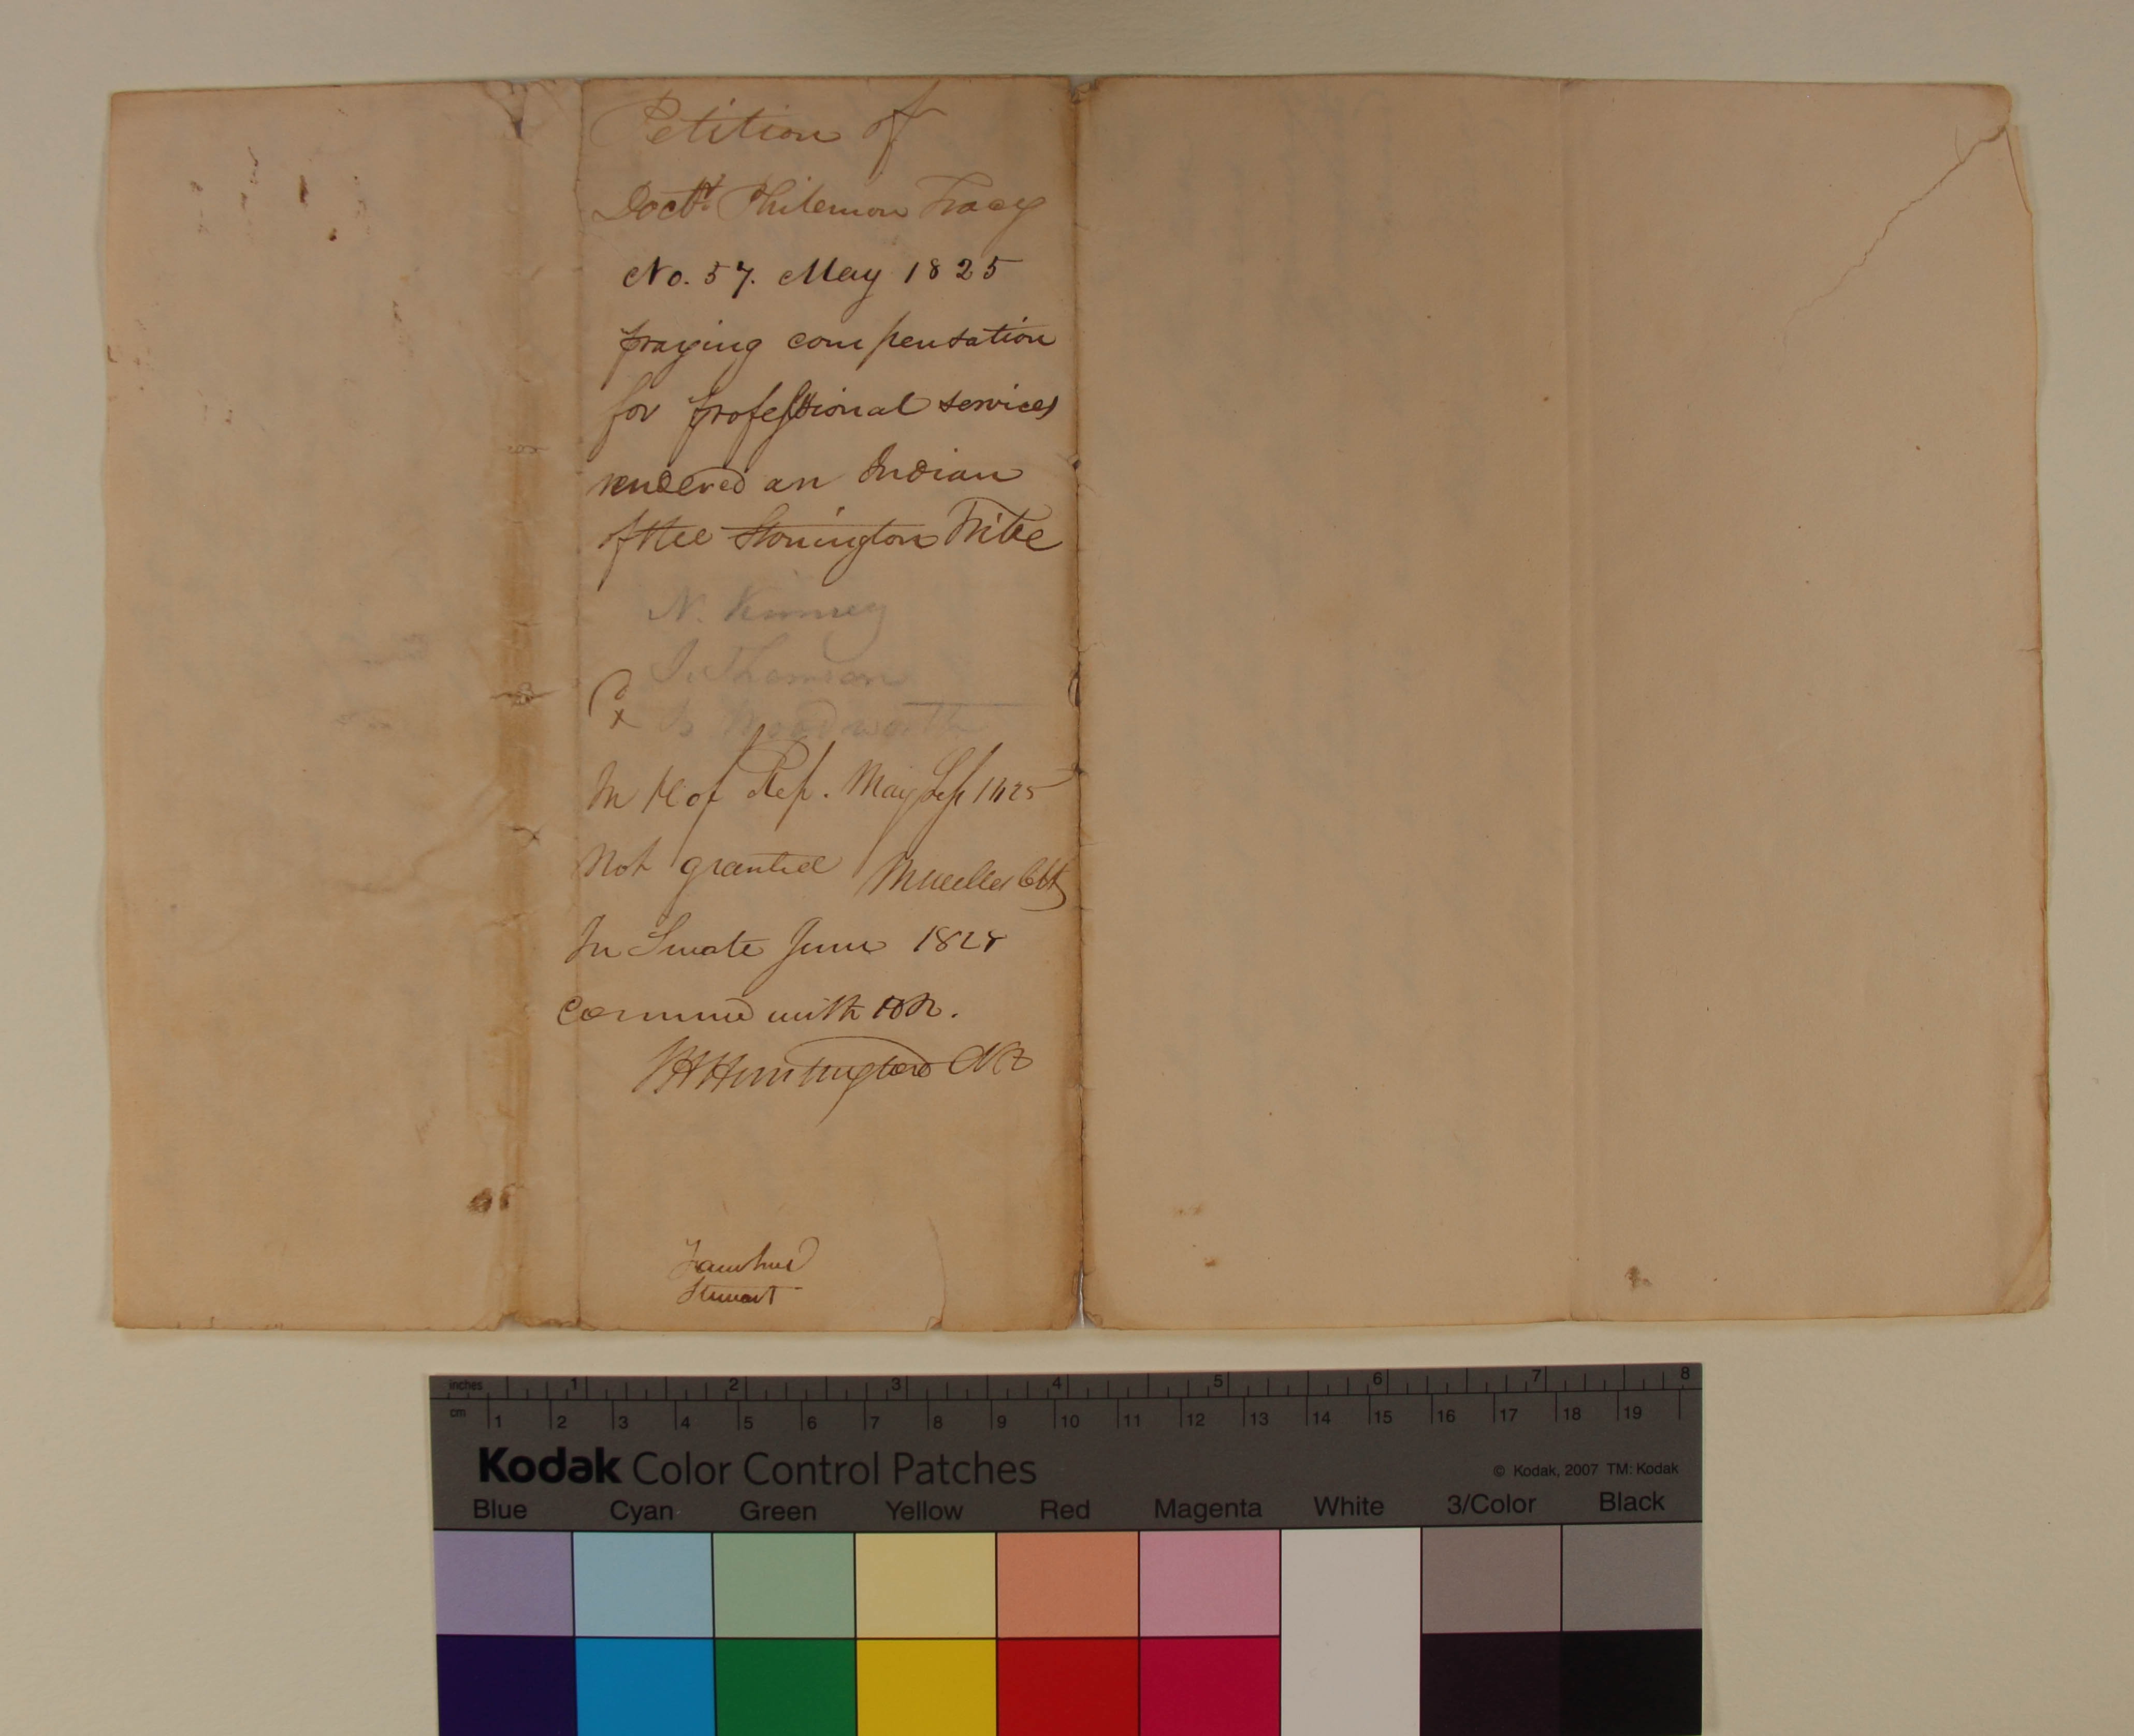 Petition of
Doctr. Philemon Tracy
No. 57. May 1825
praying compensation
for professional services
rendered an Indian
of the Stonington Tribe
N. Kinney
J. Thomson
Woodworth
In H of Rep. May Sess 1825
Not granted
In Senate June 1825
Concurred with HR.
Huntington
Stewart
inches 1 2 3 4 5 6 7 8
cm 1 2 3 4 5 6 7 8 9 10 11 12 13 14 15 16 17 18 19
Kodak Color Control Patches
© Kodak, 2007 TM: Kodak
Blue Cyan Green Yellow Red Magenta White 3/Color Black